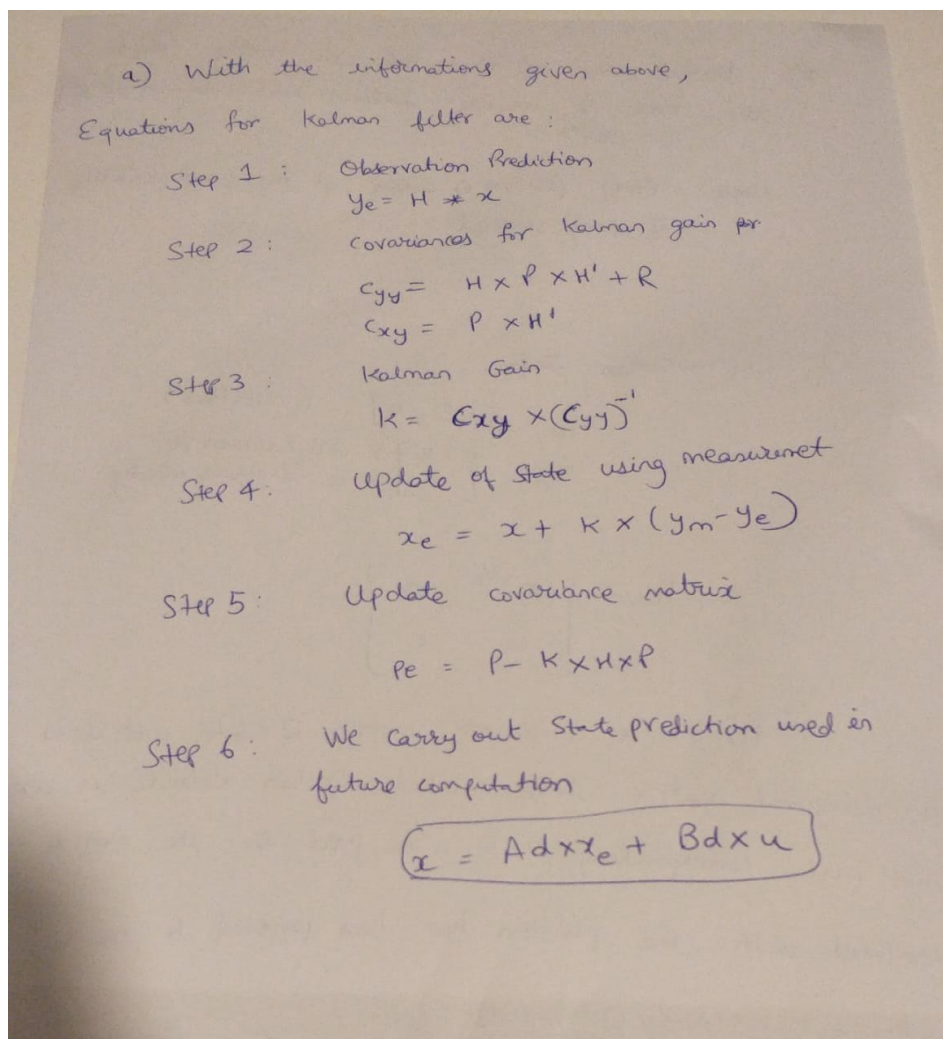 a) With the informations given above,
Equations for Kalman filter are :
Step 1 : Observation Prediction
ye = H * x
Step 2 : Covariances for Kalman gain
Cyy = H × P × H' + R
Cxy = P × H'
Step 3 : Kalman Gain
K = Cxy × (Cyy)⁻¹
Step 4 : Update of State using measuremet
xe = x + K × (ym - ye)
Step 5 : Update covariance matrix
Pe = P - K × H × P
Step 6 : We carry out State prediction used in
future computation
x = Ad × xe + Bd × u